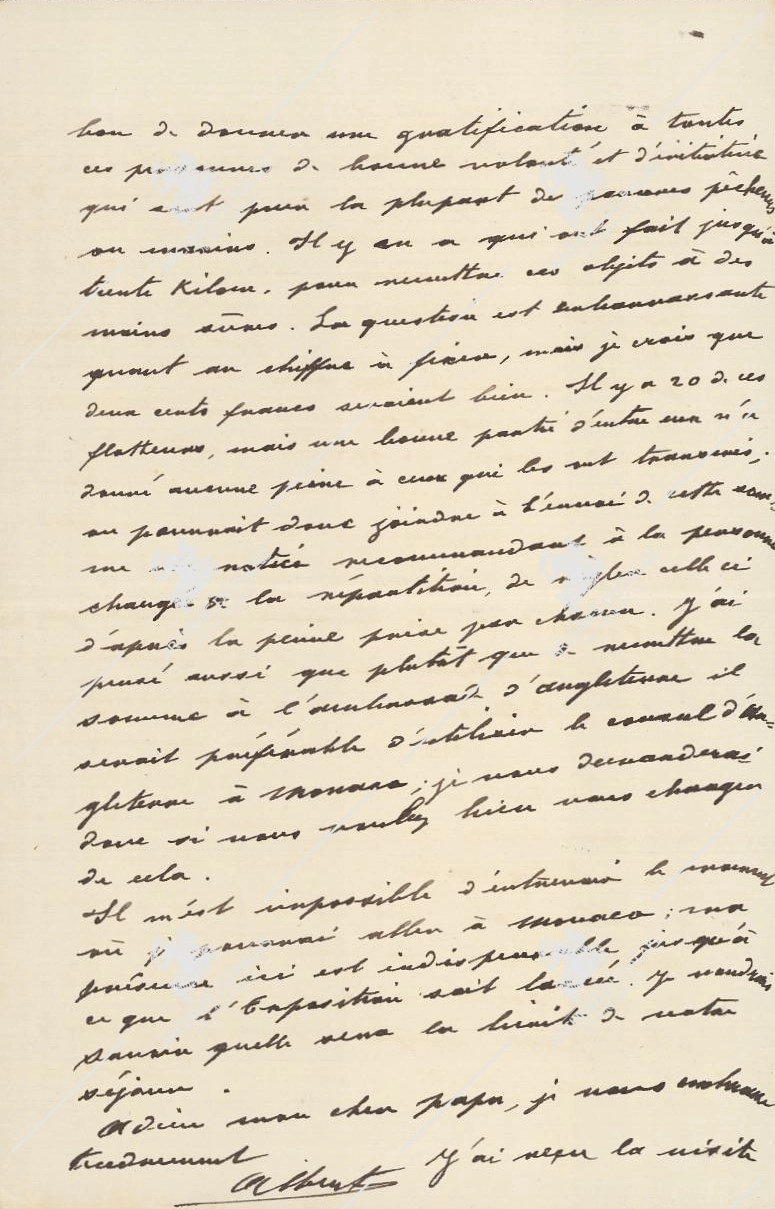 bon de donner une gratification à toutes
ces personnes de bonne volonté et d'initiative
qui sont pour la plupart de pauvres pêcheurs
ou marins. Il y en a qui ont fait jusqu'à
trente Kilom. pour remettre ces objets à des
mains sûres. La question est embarrassante
quant au chiffre à fixer, mais je crois que
deux cents francs seraient bien. Il y a 20 de ces
flotteurs, mais une bonne partie d'entre eux n'a
donné aucune peine à ceux qui les ont transmis;
on pourrait donc joindre à l'envoi de cette som-
me une notice recommandant à la personne
chargée de la répartition, de régler celle ci
d'après la peine prise par chacun. J'ai
pensé aussi que plutôt que de remettre la
somme à l'ambassade d'Angleterre il
serait préférable d'utiliser le consul d'An-
gleterre à Monaco; je vous demanderai
donc si vous voulez bien vous charger
de cela.
Il m'est impossible d'entrevoir le moment
où je pourrai aller à Monaco; ma
présence ici est indispensable jusqu'à
ce que l'Exposition soit lancée. Je voudrais
savoir quelle sera la limite de votre
séjour.
Adieu mon cher papa, je vous embrasse
tendrement
Albert J'ai reçu la visite